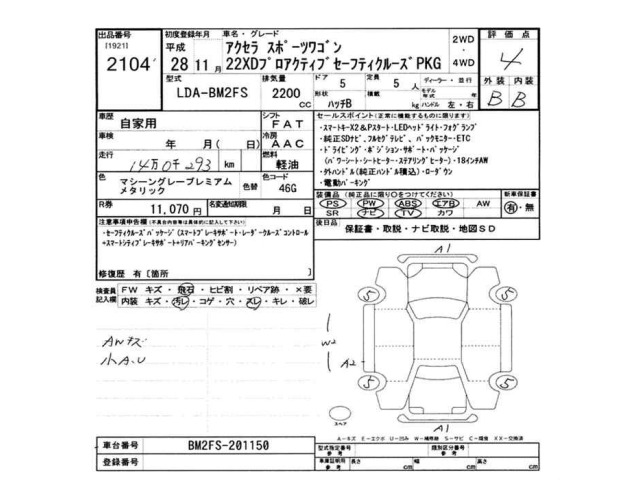 出品番号 初度登録年月 車名・グレード 評価点
[1921] 平成 アクセラ スポーツワゴン 2WD
2104 28 11月 22XDプロアクティブセーフティクルーズPKG 4WD 4
型式 排気量 ドア 5 定員 5人 ディーラー・並行 外装 内装
LDA-BM2FS 2200 cc 形状 ハッチB 積載 kg モデル年式 年 ハンドル 左・右 B B
車歴 自家用 シフト FAT セールスポイント(正常に機能するものに限ります)
・スマートキーX2&Pスタート・LEDヘッドライト・フォグランプ
車検 年 月(日) 冷房 AAC ・純正SDナビ、フルセグテレビ、バックモニター・ETC
・ドライビング・ポジション・サポート・パッケージ
走行 14万0千293 km 燃料 軽油 (パワーシート・シートヒーター・ステアリングヒーター)・18インチAW
・外ハンドル(純正ハンドル積込)・ローダウン
色 マシーングレープレミアムメタリック 色替 色コード 46G ・電動パーキング
装備品(純正品に限り○をつけてください) 新車保証書
PS PW ABS エアB AW 有・無
R券 11,070円 名変通知期限 月 日 SR ナビ TV カワ
後日品 保証書・取説・ナビ取説・地図SD
注意事項申告欄(不具合内容等は具体的に記入して下さい)
・セーフティクルーズパッケージ(スマートブレーキサポート・レーダークルーズコントロール
+スマートシティブレーキサポート+リアパーキングセンサー)
修復歴 有[箇所 ]
検査員記入欄 FW キズ・飛石・ヒビ割・リペア跡・×要
内装 キズ・汚レ・コゲ・穴・スレ・キレ・破レ
A1
5 5
AWキズ
小A.U
W2
A2
5 5
スペア
A1
A-キズ E-エクボ U-凹み W-補修跡 S-サビ C-腐食 XX-交換済
車台番号 BM2FS-201150 型式指定番号 参考 類別区分番号 参考
登録番号 車庫証明用 参考 長さ cm 幅 cm 高さ cm